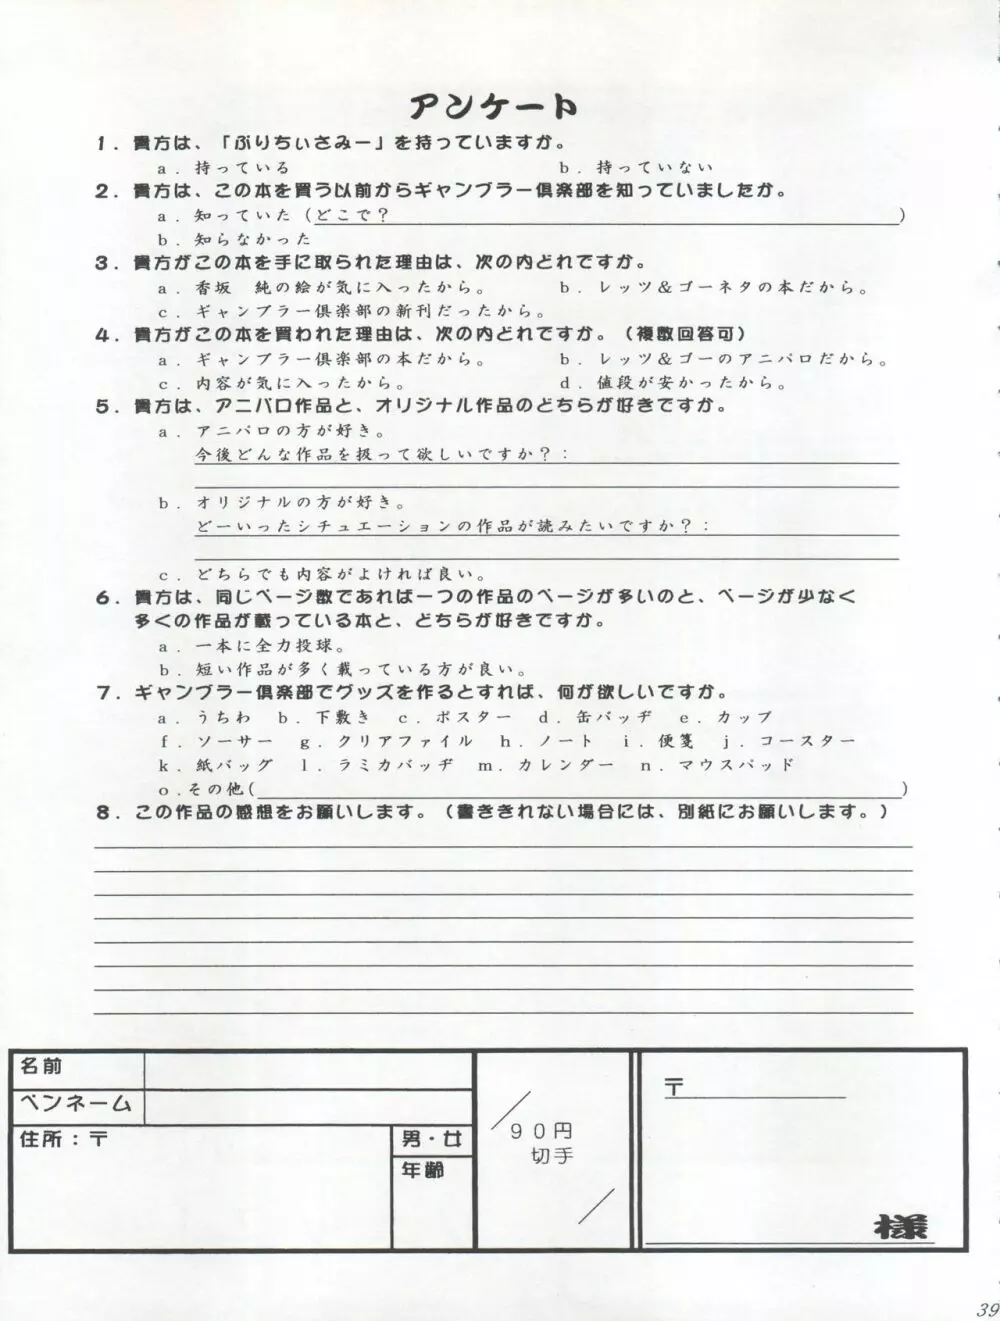 アンケート
1．貴方は、「ぷりちぃさみー」を持っていますか。
ａ．持っている　ｂ．持っていない
2．貴方は、この本を買う以前からギャンブラー倶楽部を知っていましたか。
ａ．知っていた（どこで？　）
ｂ．知らなかった
3．貴方がこの本を手に取られた理由は、次の内どれですか。
ａ．香坂　純の絵が気に入ったから。　ｂ．レッツ＆ゴーネタの本だから。
ｃ．ギャンブラー倶楽部の新刊だったから。
4．貴方がこの本を買われた理由は、次の内どれですか。（複数回答可）
ａ．ギャンブラー倶楽部の本だから。　ｂ．レッツ＆ゴーのアニパロだから。
ｃ．内容が気に入ったから。　ｄ．値段が安かったから。
5．貴方は、アニパロ作品と、オリジナル作品のどちらが好きですか。
ａ．アニパロの方が好き。
今後どんな作品を扱って欲しいですか？：
ｂ．オリジナルの方が好き。
どーいったシチュエーションの作品が読みたいですか？：
ｃ．どちらでも内容がよければ良い。
6．貴方は、同じページ数であれば一つの作品のページが多いのと、ページが少なく
多くの作品が載っている本と、どちらが好きですか。
ａ．一本に全力投球。
ｂ．短い作品が多く載っている方が良い。
7．ギャンブラー倶楽部でグッズを作るとすれば、何が欲しいですか。
ａ．うちわ　ｂ．下敷き　ｃ．ポスター　ｄ．缶バッヂ　ｅ．カップ
ｆ．ソーサー　ｇ．クリアファイル　ｈ．ノート　ｉ．便箋　ｊ．コースター
ｋ．紙バッグ　ｌ．ラミカバッヂ　ｍ．カレンダー　ｎ．マウスパッド
ｏ．その他(　)
8．この作品の感想をお願いします。（書ききれない場合には、別紙にお願いします。）
名前
ペンネーム
住所：〒
男・女
年齢
９０円
切手
〒
様
39